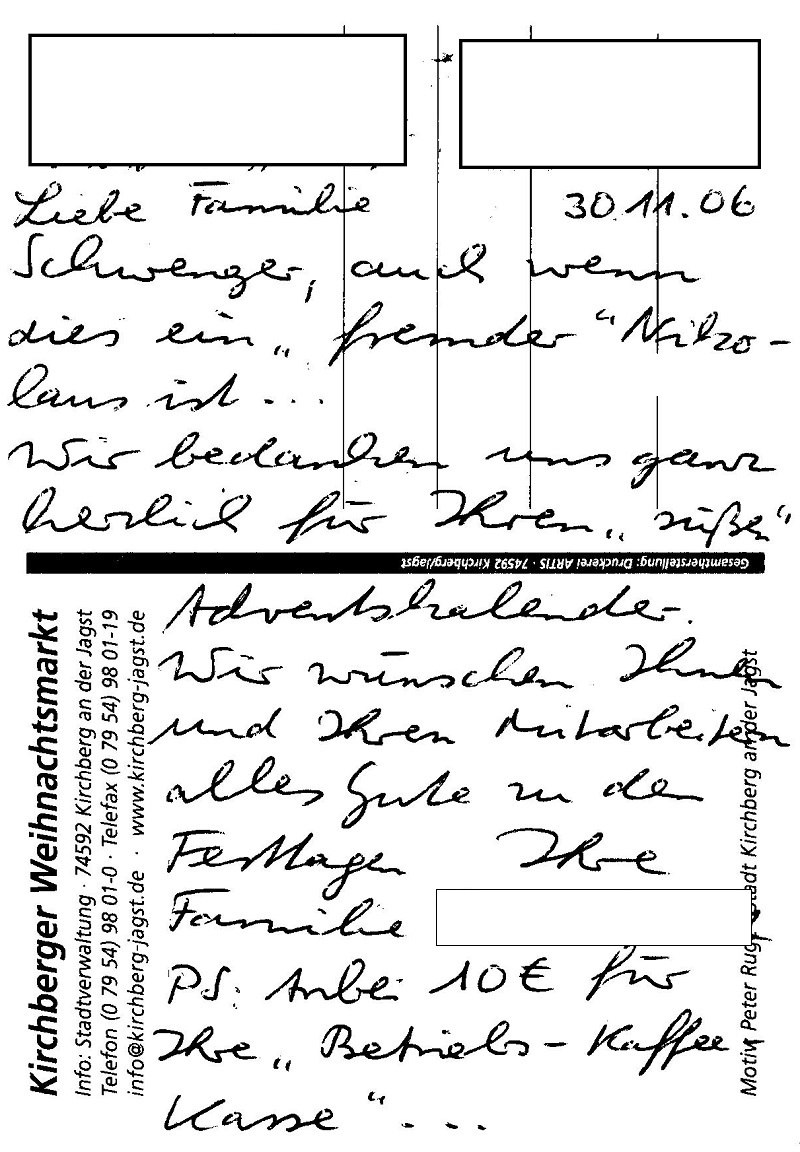 Liebe Familie 30.11.06
Schwenger, auch wenn
dies ein „fremder“ Niko-
laus ist...
Wir bedanken uns ganz
herzlich für Ihren „süßen“
Gesamtherstellung: Druckerei ARTIS · 74592 Kirchberg/Jagst
Adventskalender.
Wir wünschen Ihnen
und Ihren Mitarbeitern
alles Gute zu den
Festtagen Ihre
Familie
PS: Anbei 10 € für
Ihre „Betriebs-Kaffee
Kasse“...
Kirchberger Weihnachtsmarkt
Info: Stadtverwaltung · 74592 Kirchberg an der Jagst
Telefon (0 79 54) 98 01-0 · Telefax (0 79 54) 98 01-19
info@kirchberg-jagst.de · www.kirchberg-jagst.de
Motiv Peter Stadt Kirchberg an der Jagst